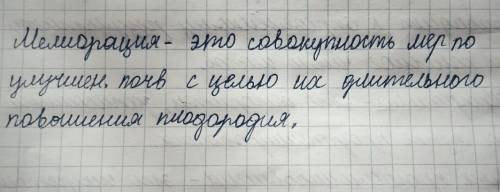 Мелиорация - это совокупность мер по
улучшен. почв с целью их длительного
повышения плодородия.